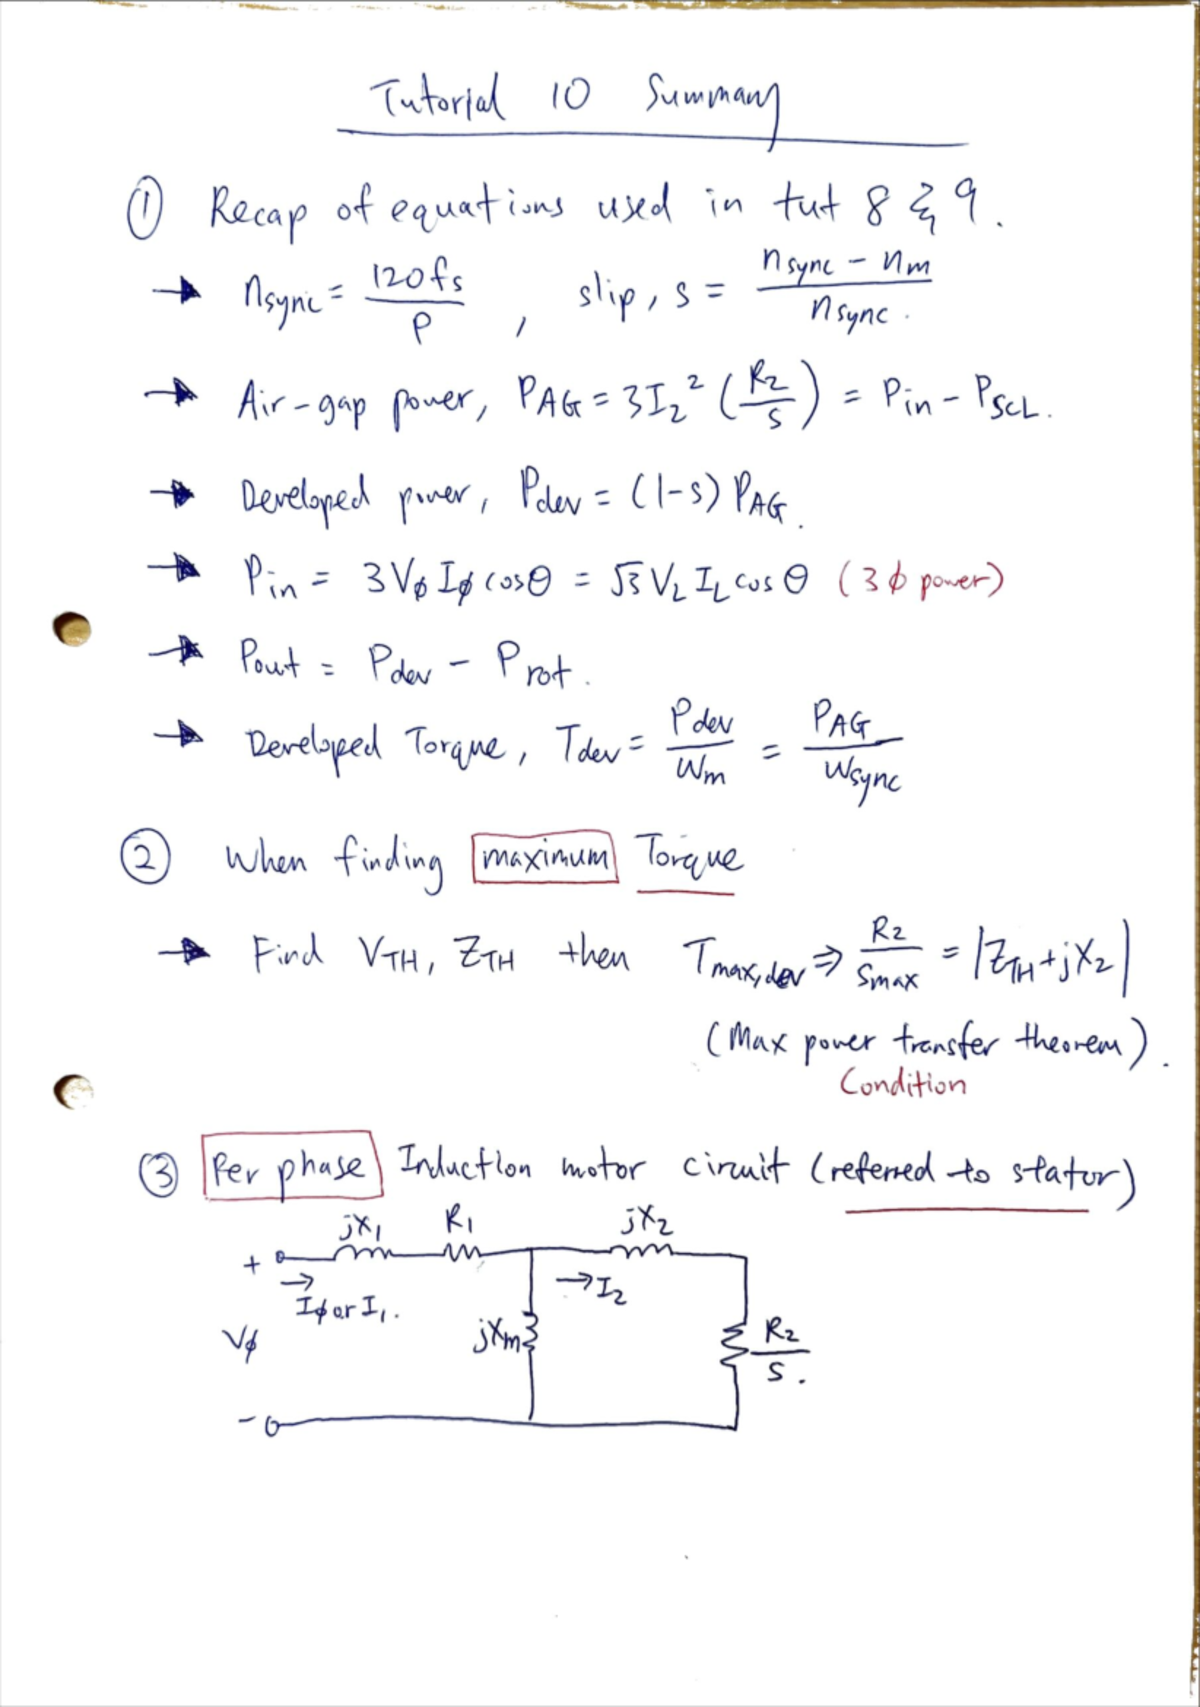 Tutorial 10 Summary
① Recap of equations used in tut 8 & 9.
→ nsync = 120fs / P , slip, s = nsync - nm / nsync .
→ Air-gap power, PAG = 3I₂² (R₂/S) = Pin - PSCL.
→ Developed power, Pdev = (1-s) PAG.
→ Pin = 3VϕIϕ cosθ = √3 VL IL cosθ (3ϕ power)
→ Pout = Pdev - Prot.
→ Developed Torque, Tdev = Pdev / Wm = PAG / Wsync
② When finding maximum Torque
→ Find VTH, ZTH then Tmax,dev ⇒ R₂ / Smax = |ZTH + jX₂|
(Max power transfer theorem).
Condition
③ Per phase Induction motor circuit (referred to stator)
jX₁ R₁ jX₂
+ → → I₂
Iϕ or I₁.
Vϕ jXm R₂ / S.
-